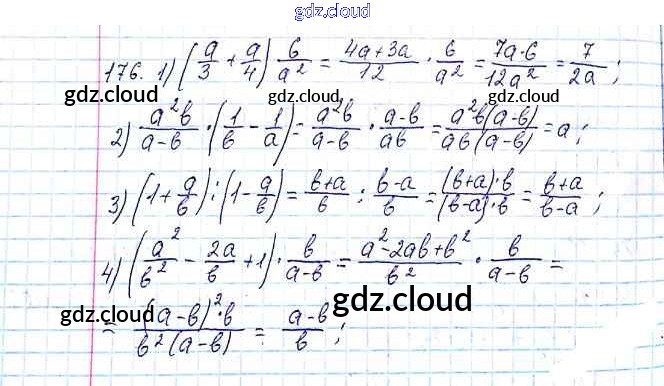 gdz.cloud
176. 1) (a/3 + a/4) · 6/a² = (4a+3a)/12 · 6/a² = 7a·6/12a² = 7/2a ;
gdz.cloud gdz.cloud gdz.cloud
2) a²b/(a-b) · (1/b - 1/a) = a²b/(a-b) · (a-b)/ab = a²b(a-b)/ab(a-b) = a;
3) (1 + a/b) : (1 - a/b) = (b+a)/b : (b-a)/b = (b+a)·b/(b-a)·b = (b+a)/(b-a) ;
4) (a²/b² - 2a/b + 1) · b/(a-b) = (a²-2ab+b²)/b² · b/(a-b) =
gdz.cloud gdz.cloud
= (a-b)²·b/b²(a-b) = (a-b)/b ;